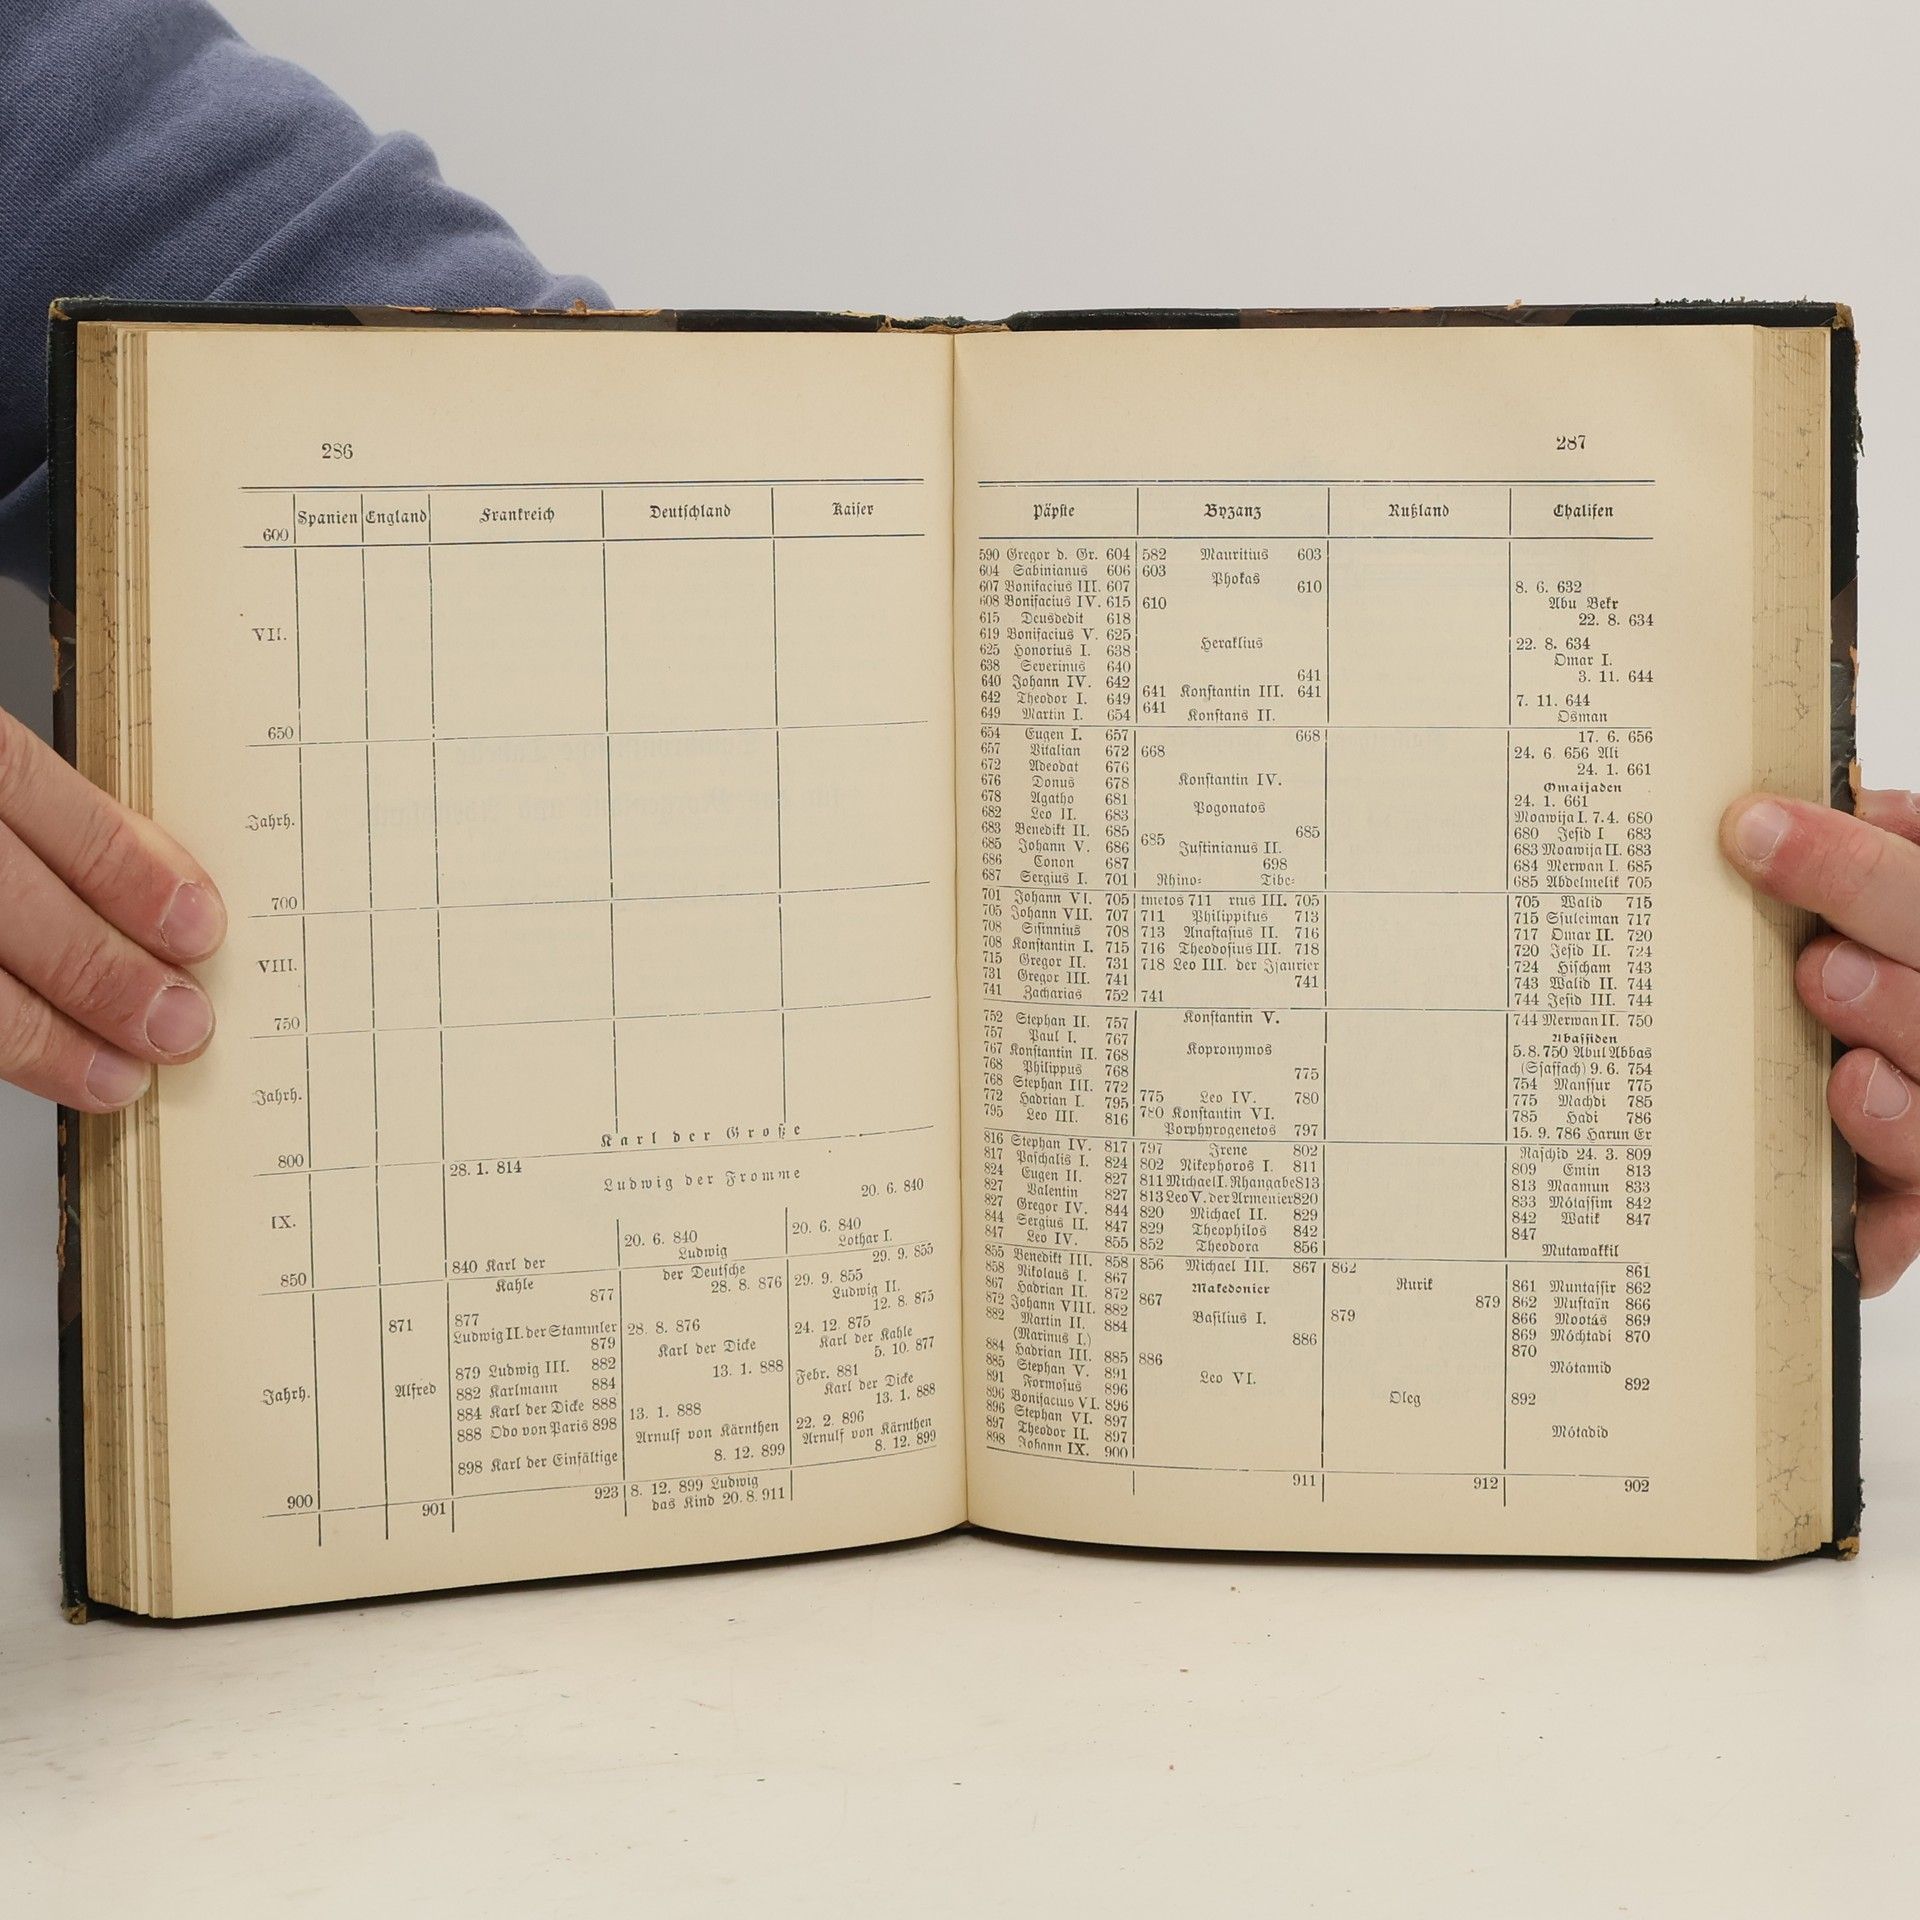 286
600 Spanien England Frankreich Deutschland Kaiser
VII.
650
Jahrh.
700
VIII.
750
Jahrh.
Karl der Große
800
28. 1. 814
Ludwig der Fromme
20. 6. 840
IX.
20. 6. 840 20. 6. 840
Ludwig Lothar I.
840 Karl der 29. 9. 855
850 der Deutsche
Kahle 28. 8. 876 29. 9. 855
877 Ludwig II.
12. 8. 875
871 877 24. 12. 875
Ludwig II. der Stammler 28. 8. 876 Karl der Kahle
879 Karl der Dicke 5. 10. 877
879 Ludwig III. 882 13. 1. 888 Febr. 881
Jahrh. Alfred 882 Karlmann 884 Karl der Dicke
884 Karl der Dicke 888 13. 1. 888 13. 1. 888
888 Odo von Paris 898 Arnulf von Kärnthen 22. 2. 896
Arnulf von Kärnthen
898 Karl der Einfältige 8. 12. 899 8. 12. 899
900 923 8. 12. 899 Ludwig
901 das Kind 20. 8. 911
287
Päpste Byzanz Rußland Chalifen
590 Gregor d. Gr. 604 582 Mauritius 603
604 Sabinianus 606 603 Phokas
607 Bonifacius III. 607 610 8. 6. 632
608 Bonifacius IV. 615 610 Abu Bekr
615 Deusdedit 618 22. 8. 634
619 Bonifacius V. 625 Heraklius 22. 8. 634
625 Honorius I. 638 Omar I.
638 Severinus 640 641 3. 11. 644
640 Johann IV. 642 641 Konstantin III. 641
642 Theodor I. 649 641 7. 11. 644
649 Martin I. 654 Konstans II. Osman
654 Eugen I. 657 668 17. 6. 656
657 Vitalian 672 668 24. 6. 656 Ali
672 Adeodat 676 24. 1. 661
676 Donus 678 Konstantin IV. Omaijaden
678 Agatho 681 24. 1. 661
682 Leo II. 683 Pogonatos Moawija I. 7. 4. 680
683 Benedikt II. 685 685 680 Jesid I 683
685 Johann V. 686 685 Justinianus II. 683 Moawija II. 683
686 Conon 687 698 684 Merwan I. 685
687 Sergius I. 701 Rhino- Tibe- 685 Abdelmelik 705
701 Johann VI. 705 tmetos 711 rius III. 705 705 Walid 715
705 Johann VII. 707 711 Philippikus 713 715 Sjuleiman 717
708 Sisinnius 708 713 Anastasius II. 716 717 Omar II. 720
708 Konstantin I. 715 716 Theodosius III. 718 720 Jesid II. 724
715 Gregor II. 731 718 Leo III. der Isaurier 724 Hischam 743
731 Gregor III. 741 741 743 Walid II. 744
741 Zacharias 752 741 744 Jesid III. 744
752 Stephan II. 757 Konstantin V. 744 Merwan II. 750
757 Paul I. 767 Abassiden
767 Konstantin II. 768 Kopronymos 5. 8. 750 Abul Abbas
768 Philippus 768 775 (Sjaffach) 9. 6. 754
768 Stephan III. 772 754 Manssur 775
772 Hadrian I. 795 775 Leo IV. 780 775 Machdi 785
795 Leo III. 816 780 Konstantin VI. 785 Hadi 786
Porphyrogenetos 797 15. 9. 786 Harun Er
816 Stephan IV. 817 797 Irene 802 Raschid 24. 3. 809
817 Paschalis I. 824 802 Nikephoros I. 811 809 Emin 813
824 Eugen II. 827 811 Michael I. Rhangabe 813 813 Maamun 833
827 Valentin 827 813 Leo V. der Armenier 820 833 Mótassim 842
827 Gregor IV. 844 820 Michael II. 829 842 Watik 847
844 Sergius II. 847 829 Theophilos 842 847
847 Leo IV. 855 852 Theodora 856 Mutawakkil
855 Benedikt III. 858 856 Michael III. 867 862 861
858 Nikolaus I. 867 Makedonier Rurik 861 Muntassir 862
867 Hadrian II. 872 867 879 862 Mustaïn 866
872 Johann VIII. 882 Basilius I. 879 866 Mootás 869
882 Martin II. 884 869 Móchtadi 870
(Marinus I.) 886 870
884 Hadrian III. 885 886 Mótamid
885 Stephan V. 891 Leo VI. 892
891 Formosus 896 Oleg 892
896 Bonifacius VI. 896
896 Stephan VI. 897
897 Theodor II. 897 Mótadid
898 Johann IX. 900
911 912 902